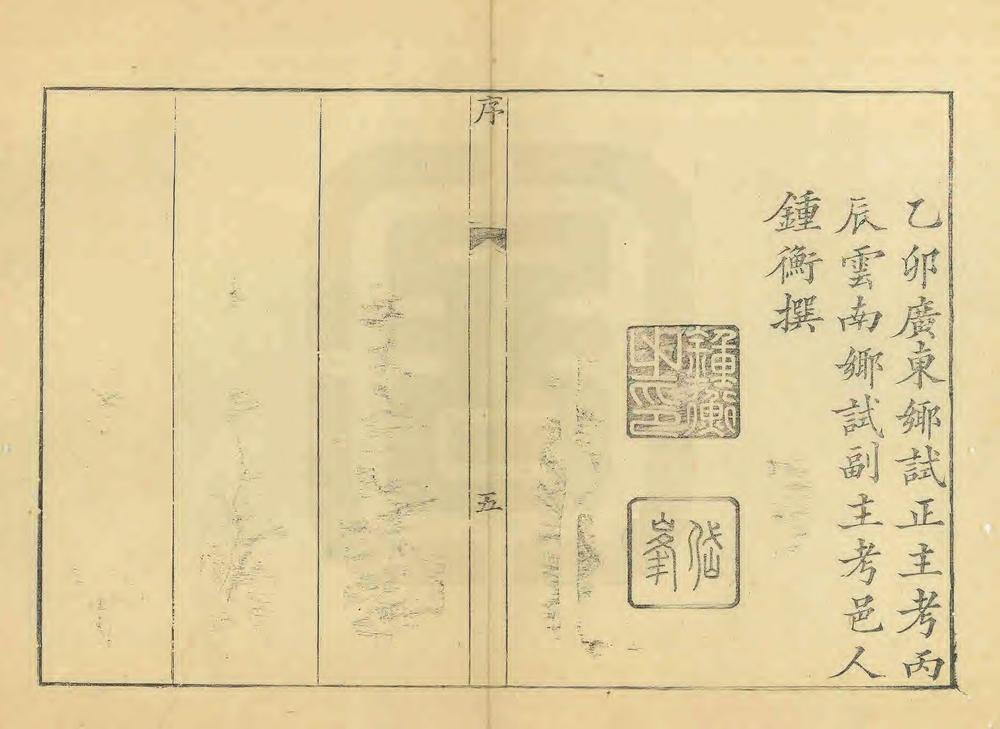 乙卯廣東鄉試正主考丙
辰雲南鄉試副主考邑人
鍾衡撰
鍾衡之印
岱峯
序
五